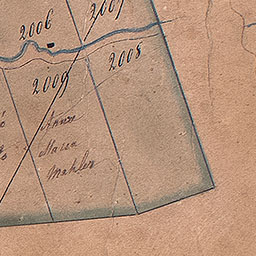 2007
2006
2008
2009
Anna
Maria
Mahler